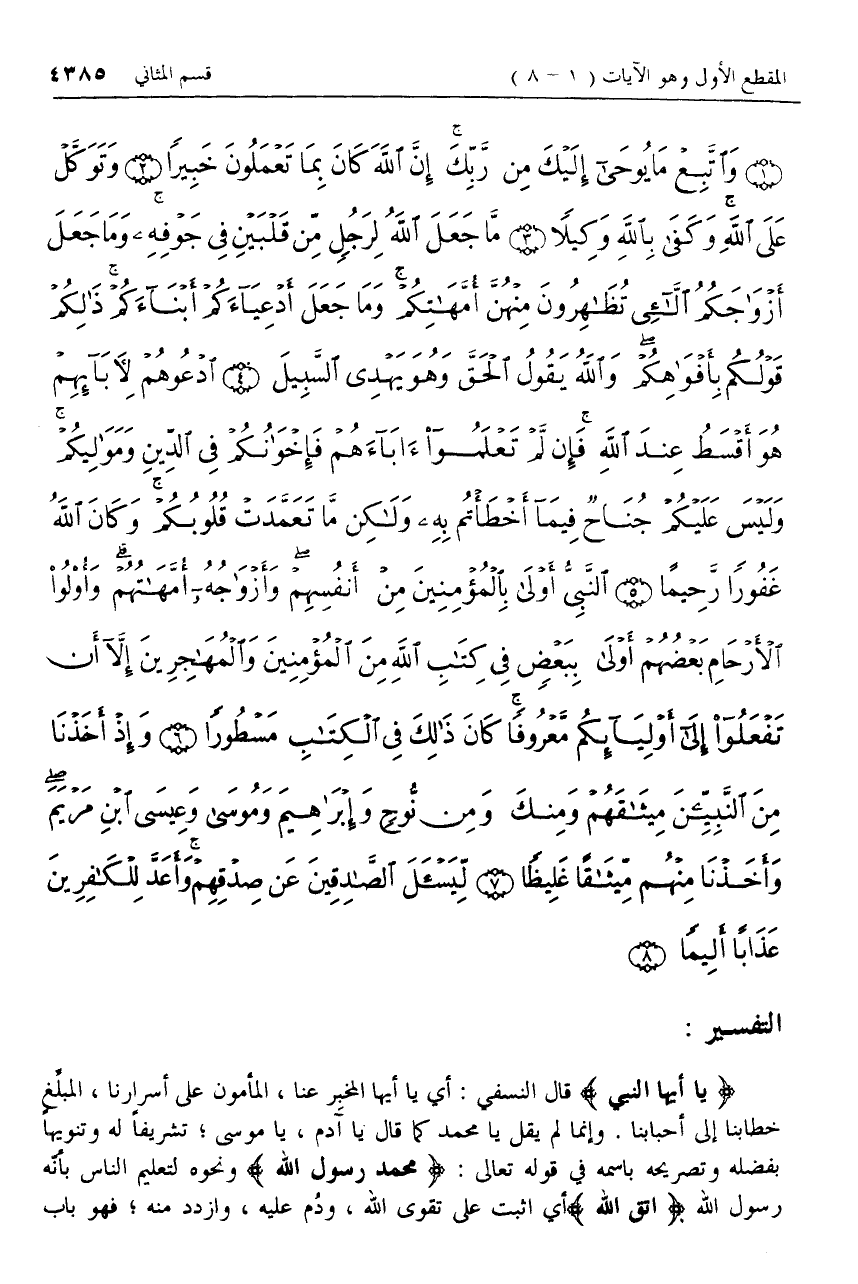 المقطع الأول وهو الآيات ( ١ - ٨ ) قسم المثاني ٤٣٨٥
﴿١﴾ وَٱتَّبِعْ مَا يُوحَىٰٓ إِلَيْكَ مِن رَّبِّكَ ۚ إِنَّ ٱللَّهَ كَانَ بِمَا تَعْمَلُونَ خَبِيرًا ﴿٢﴾ وَتَوَكَّلْ
عَلَى ٱللَّهِ ۚ وَكَفَىٰ بِٱللَّهِ وَكِيلًا ﴿٣﴾ مَّا جَعَلَ ٱللَّهُ لِرَجُلٍ مِّن قَلْبَيْنِ فِى جَوْفِهِۦ ۚ وَمَا جَعَلَ
أَزْوَٰجَكُمُ ٱلَّٰٓـِٔى تُظَٰهِرُونَ مِنْهُنَّ أُمَّهَٰتِكُمْ ۚ وَمَا جَعَلَ أَدْعِيَآءَكُمْ أَبْنَآءَكُمْ ۚ ذَٰلِكُمْ
قَوْلُكُم بِأَفْوَٰهِكُمْ ۖ وَٱللَّهُ يَقُولُ ٱلْحَقَّ وَهُوَ يَهْدِى ٱلسَّبِيلَ ﴿٤﴾ ٱدْعُوهُمْ لِأٓبَآئِهِمْ
هُوَ أَقْسَطُ عِندَ ٱللَّهِ ۚ فَإِن لَّمْ تَعْلَمُوٓا۟ ءَابَآءَهُمْ فَإِخْوَٰنُكُمْ فِى ٱلدِّينِ وَمَوَٰلِيكُمْ ۚ
وَلَيْسَ عَلَيْكُمْ جُنَاحٌ فِيمَآ أَخْطَأْتُم بِهِۦ وَلَٰكِن مَّا تَعَمَّدَتْ قُلُوبُكُمْ ۚ وَكَانَ ٱللَّهُ
غَفُورًا رَّحِيمًا ﴿٥﴾ ٱلنَّبِىُّ أَوْلَىٰ بِٱلْمُؤْمِنِينَ مِنْ أَنفُسِهِمْ ۖ وَأَزْوَٰجُهُۥٓ أُمَّهَٰتُهُمْ ۗ وَأُو۟لُوا۟
ٱلْأَرْحَامِ بَعْضُهُمْ أَوْلَىٰ بِبَعْضٍ فِى كِتَٰبِ ٱللَّهِ مِنَ ٱلْمُؤْمِنِينَ وَٱلْمُهَٰجِرِينَ إِلَّآ أَن
تَفْعَلُوٓا۟ إِلَىٰٓ أَوْلِيَآئِكُم مَّعْرُوفًا ۚ كَانَ ذَٰلِكَ فِى ٱلْكِتَٰبِ مَسْطُورًا ﴿٦﴾ وَإِذْ أَخَذْنَا
مِنَ ٱلنَّبِيِّـۧنَ مِيثَٰقَهُمْ وَمِنكَ وَمِن نُّوحٍ وَإِبْرَٰهِيمَ وَمُوسَىٰ وَعِيسَى ٱبْنِ مَرْيَمَ ۖ
وَأَخَذْنَا مِنْهُم مِّيثَٰقًا غَلِيظًا ﴿٧﴾ لِّيَسْـَٔلَ ٱلصَّٰدِقِينَ عَن صِدْقِهِمْ ۚ وَأَعَدَّ لِلْكَٰفِرِينَ
عَذَابًا أَلِيمًا ﴿٨﴾
التفسير :
﴿ يا أيها النبي ﴾ قال النسفي : أي يا أيها المخبِر عنا ، المأمون على أسرارنا ، المبلِّغ
خطابنا إلى أحبابنا . وإنما لم يقل يا محمد كما قال يا آدم ، يا موسى ؛ تشريفاً له وتنويهاً
بفضله وتصريحه باسمه في قوله تعالى : ﴿ محمد رسول الله ﴾ ونحوه لتعليم الناس بأنّه
رسول الله ﴿ اتق الله ﴾ أي اثبت على تقوى الله ، ودُم عليه ، وازدد منه ؛ فهو باب